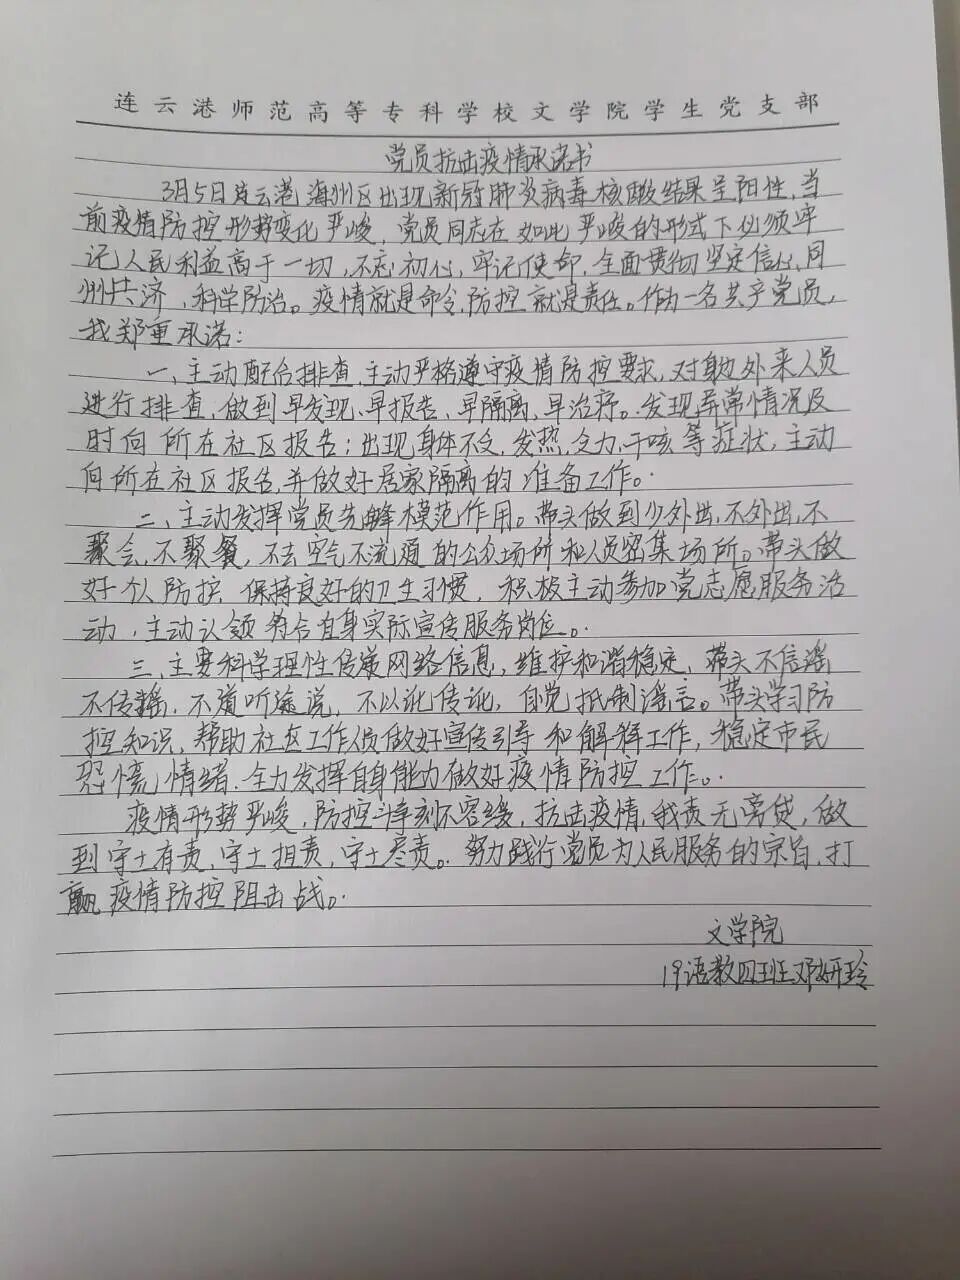 连云港师范高等专科学校文学院学生党支部
党员抗击疫情承诺书
3月5日连云港海州区出现新冠肺炎病毒核酸结果呈阳性,当
前疫情防控形势变化严峻,党员同志在如此严峻的形式下必须牢
记人民利益高于一切,不忘初心,牢记使命,全面贯彻坚定信心,同
州共济,科学防治。疫情就是命令,防控就是责任。作为一名共产党员,
我郑重承诺:
一、主动配合排查,主动严格遵守疫情防控要求,对身边外来人员
进行排查,做到早发现、早报告、早隔离,早治疗。发现异常情况及
时向所在社区报告;出现身体不文,发热,乏力,干咳等症状,主动
向所在社区报告,并做好居家隔离的准备工作。
二、主动发挥党员先锋模范作用。带头做到少外出,不外出,不
聚会,不聚餐,不去空气不流通的公众场所和人员密集场所。带头做
好个人防护,保持良好的卫生习惯,积极主动参加党志愿服务活
动,主动认领符合自身实际宣传服务岗位。
三、主要科学理性传递网络信息,维护和谐稳定,带头不信谣
不传谣,不道听途说,不以讹传讹,自觉抵制谣言。带头学习防
控知识,帮助社区工作人员做好宣传引导和解释工作,稳定市民
恐慌情绪,全力发挥自身能力做好疫情防控工作。
疫情形势严峻,防控斗争刻不容缓,抗击疫情,我责无旁贷,做
到守土有责,守土担责,守土尽责。努力践行党员为人民服务的宗旨,打
赢疫情防控阻击战。
文学院
19语教四班邓妍玲